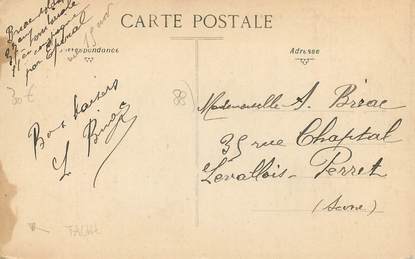 CARTE POSTALE
Correspondance
Adresse
par Epinal
15 nov
30 €
88
Bons baisers
L Binac
Mademoiselle A. Binac
35 rue Chaptal
Levallois-Perret
(Seine)
TACHE